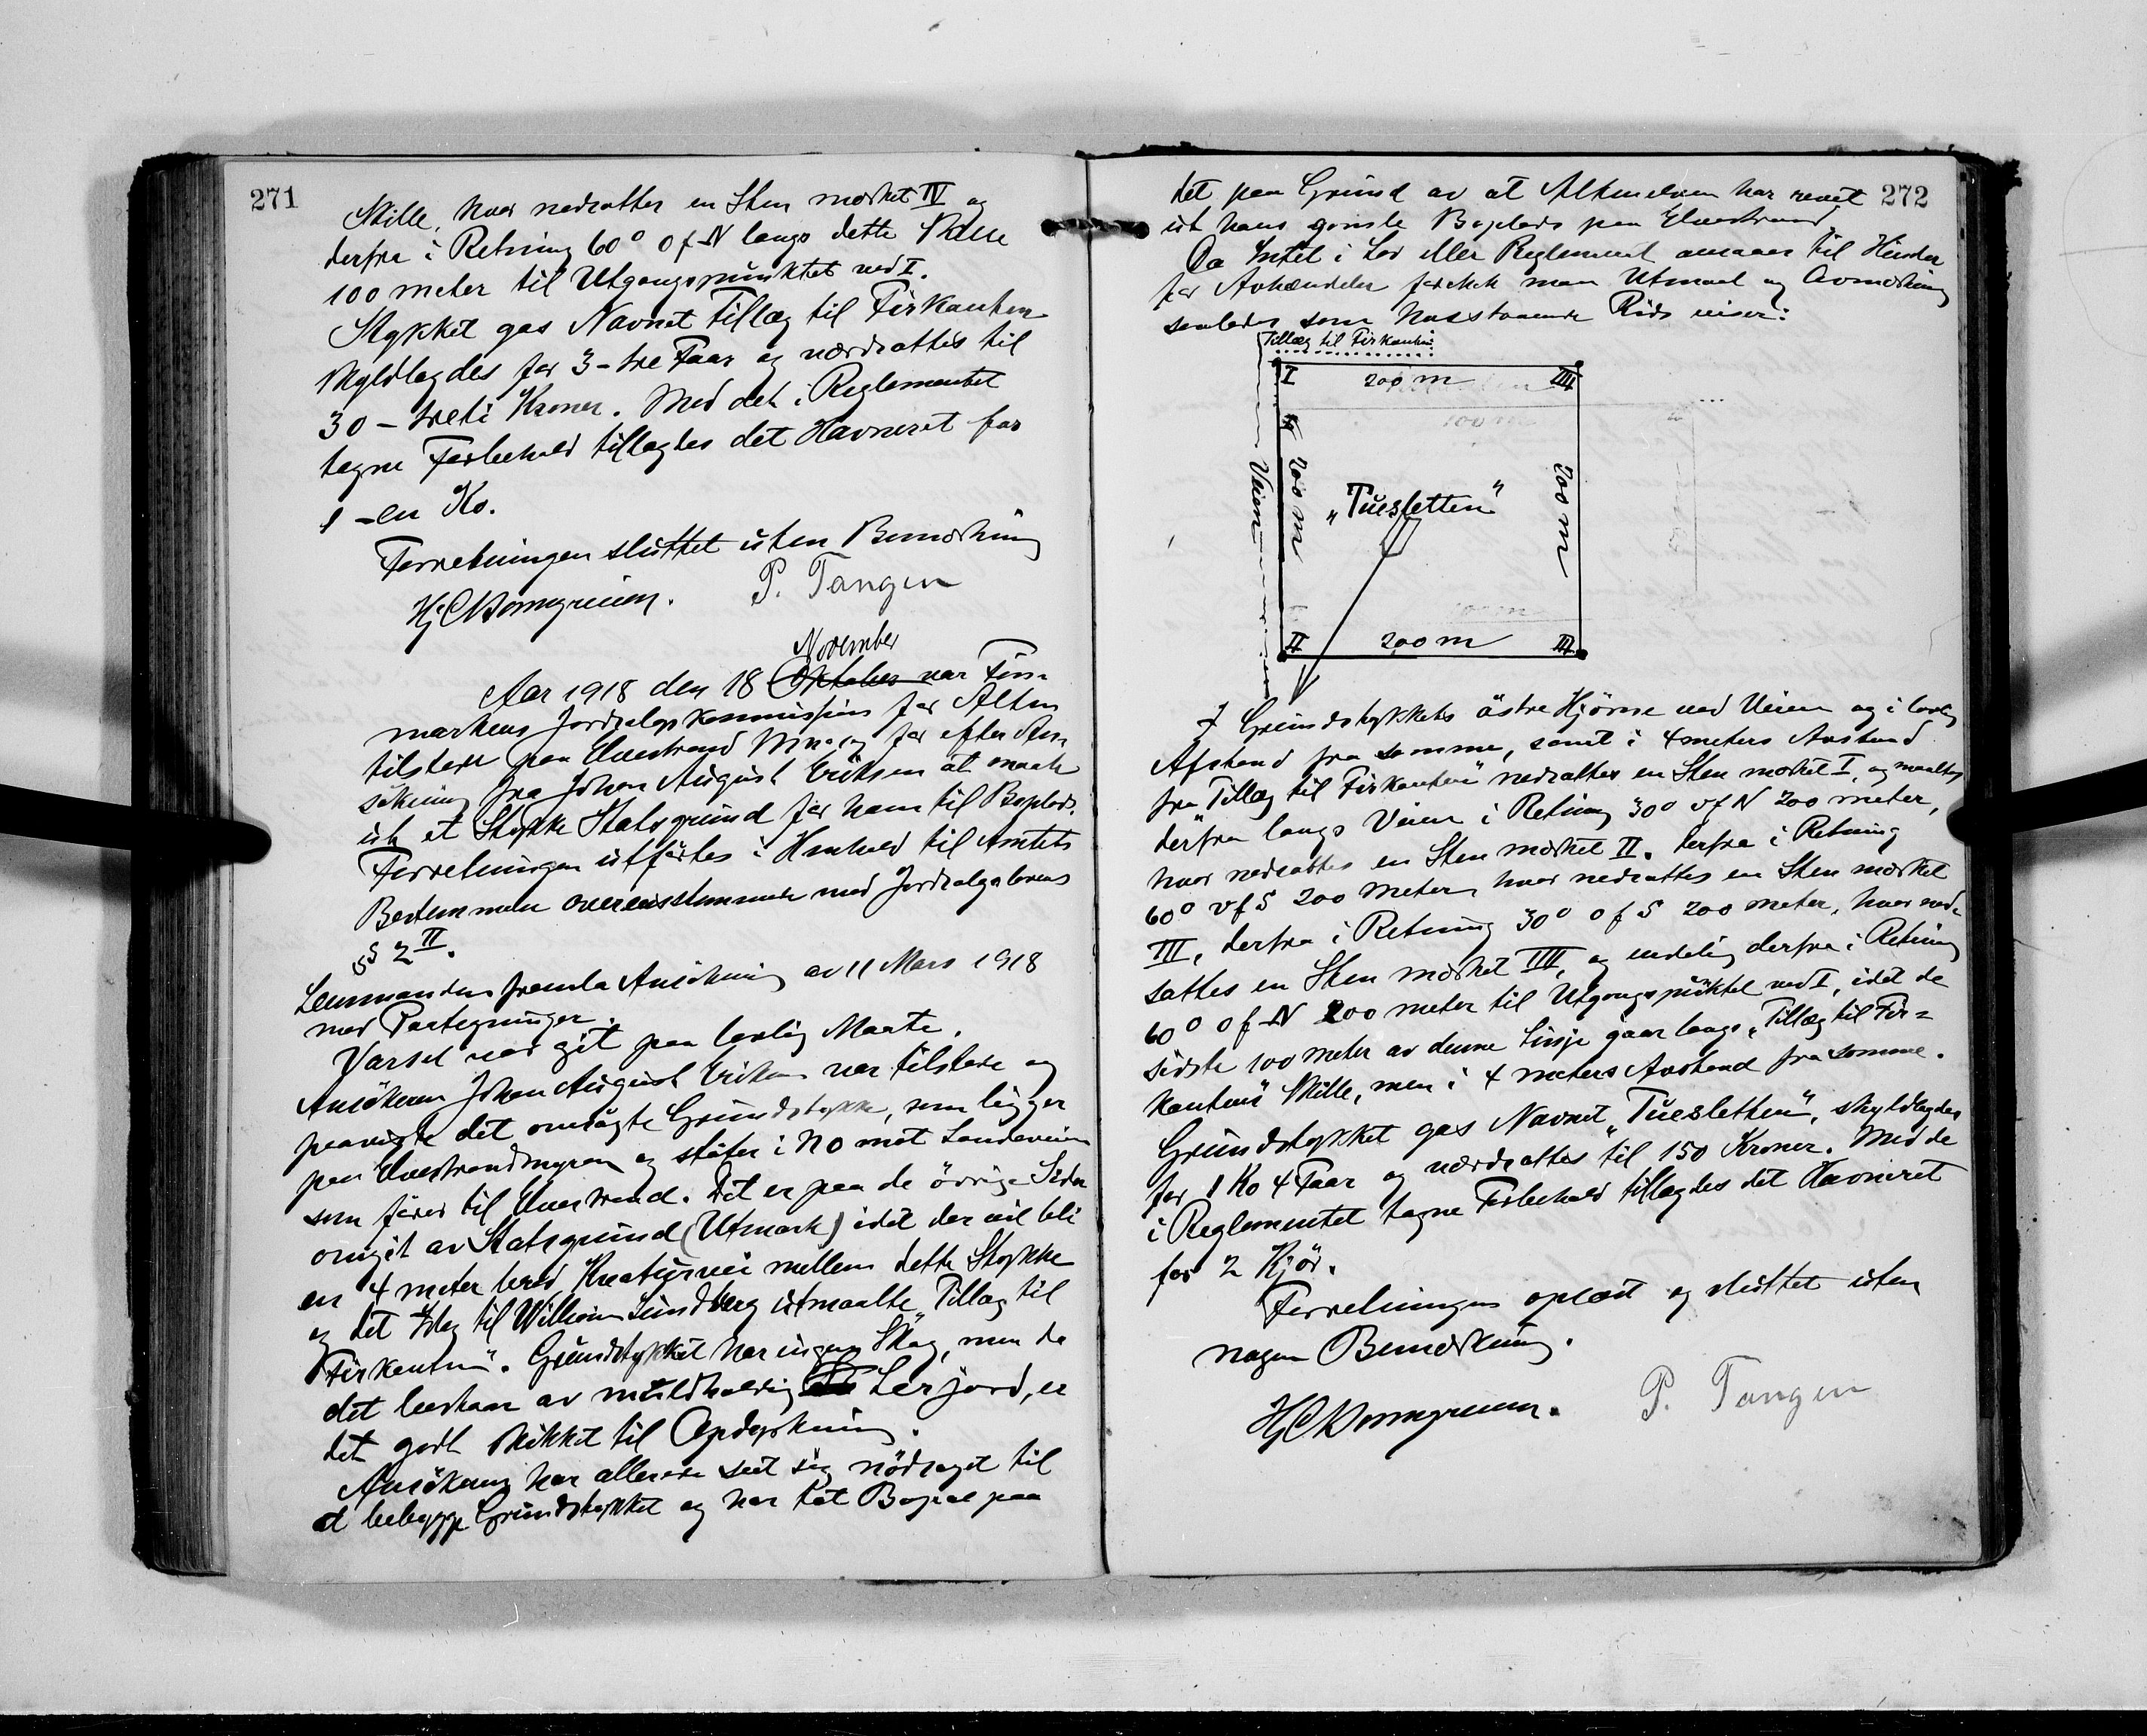 271
Skille, hvor nedsattes en Sten merket IV og
derfra i Retning 60° O f N langs dette Skille
100 meter til Utgangspunktet ved I.
Stykket gas Navnet Tillæg til Firkanten
skyldlagdes for 3 - tre Faar og værdsattes til
30 - treti Kroner. Med det i Reglementet
tagne Forbehold tillagdes det Havneret for
1 - en Ko.
Forretningen sluttet uten Bemerkning
P. Tangen
November
Aar 1918 den 18 Oktober var Fin-
markens Jordsalgskommission for Alten
tilstede paa Elvestrand for efter An-
søkning fra Johan August Eriksen at maale
ut et Stykke Statsgrund for ham til Boplads.
Forretningen utførtes i Henhold til Amtets
Bestemmelse overensstemmende med Jordsalgslovens
§ 2 II.
Lensmanden fremla Ansøkning av 11 Mars 1918
med Paategninger.
Varsel var git paa lovlig Maate.
Ansøkeren Johan August Eriksen var tilstede og
paaviste det omsøgte Grundstykke, som ligger
paa Elvestrandmyren og støter i NO mot Landeveien
som fører til Elvestrand. Det er paa de övrige Sider
omgit av Statsgrund (Utmark) idet der vil bli
en 4 meter bred Kreaturvei mellem dette Stykke
og det idag til William Lundberg utmaalte „Tillæg til
Firkanten". Grundstykket har ingen Skog, men da
det bestaar av muldholdig Lerjord, er
det godt skikket til Opdyrkning.
Ansökeren har allerede seet sig nödsaget til
at bebygge Grundstykket og har tat Bopæl paa
272
det paa Grund av at Altenelven har revet
ut hans gamle Boplads paa Elvestrand
Da Intet i Lov eller Reglement ansaaes til Hinder
for Avhændelse foretok man Utmaal og Avmerkning
saaledes som hosstaaende Rids viser:
Tillæg til Firkanten
I 200 m IIII
200 m
Veien
„Tuesletten"
200 m
II 200 m III
I Grundstykkets östre Hjörne ved Veien og i lovlig
Afstand fra samme, samt i 4 meters Avstand
fra „Tillæg til Firkanten" nedsattes en Sten merket I, og maaltes
derfra langs Veien i Retning 30° V f N 200 meter,
hvor nedsattes en Sten merket II. derfra i Retning
60° V f S 200 meter, hvor nedsattes en Sten merket
III, derfra i Retning 30° O f S 200 meter, hvor ned-
sattes en Sten merket IIII, og endelig derfra i Retning
60° O f N 200 meter til Utgangspunktet ved I, idet de
sidste 100 meter av denne Linje gaar langs „Tillæg til Fir=
kanten" Skille, men i 4 meters Avstand fra samme.
Grundstykket gas Navnet „Tuesletten", skyldlagdes
for 1 Ko 4 Faar og værdsattes til 150 Kroner. Med de
i Reglementet tagne Forbehold tillagdes det Havneret
for 2 Kjör.
Forretningen oplæst og sluttet uten
nogen Bemerkning.
P. Tangen